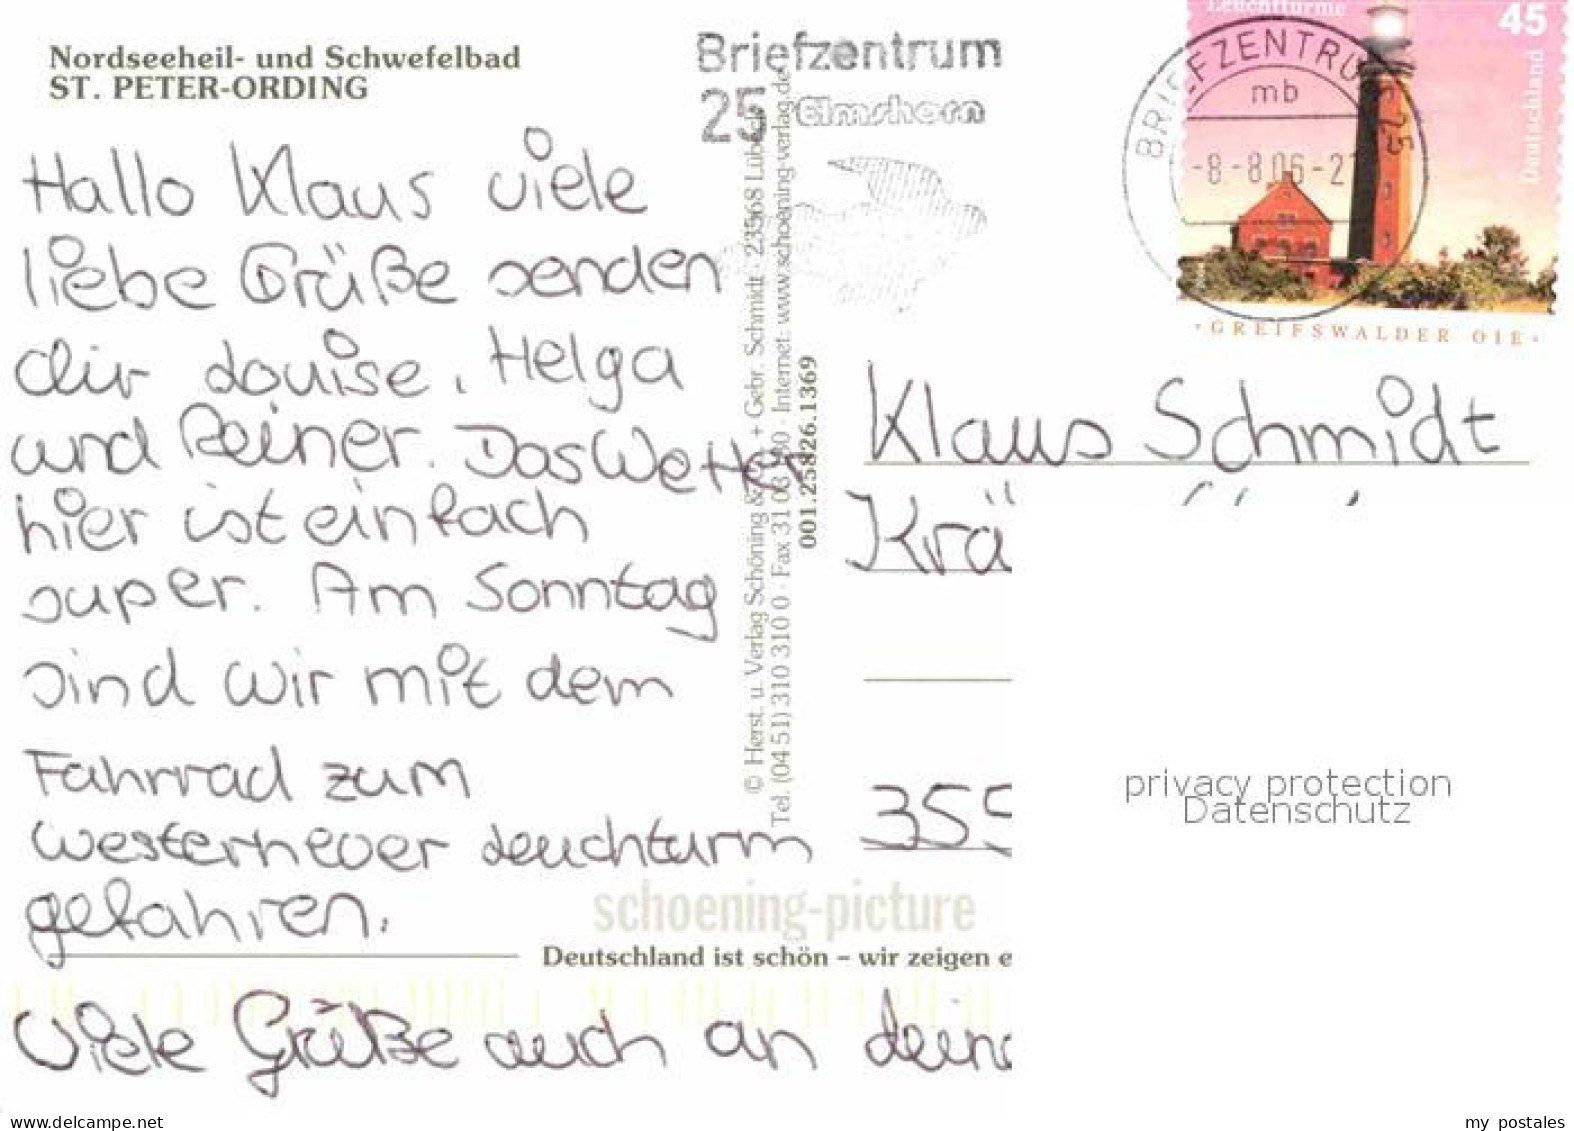 Nordseeheil- und Schwefelbad
ST. PETER-ORDING
Hallo Klaus viele
liebe Grüße senden
dir Louise, Helga
und Reiner. Das Wetter
hier ist einfach
super. Am Sonntag
sind wir mit dem
Fahrrad zum
Westerhever Leuchturm
gefahren.
Viele Grüße auch an
Briefzentrum
25 Elmshorn
© Herst. u. Verlag Schöning & + Gebr. Schmidt · 23568 Lübeck
Tel. (04 51) 310 310 0 · Fax 31 03 · Internet: www.schoening-verlag.de
001.25826.1369
schoening-picture
Deutschland ist schön – wir zeigen e
Leuchttürme
45
Deutschland
GREIFSWALDER OIE
BRIEFZENTRUM 25
mb
-8.-8.06-2
Klaus Schmidt
Krä
355
privacy protection
Datenschutz
delcampe.net
my_postales